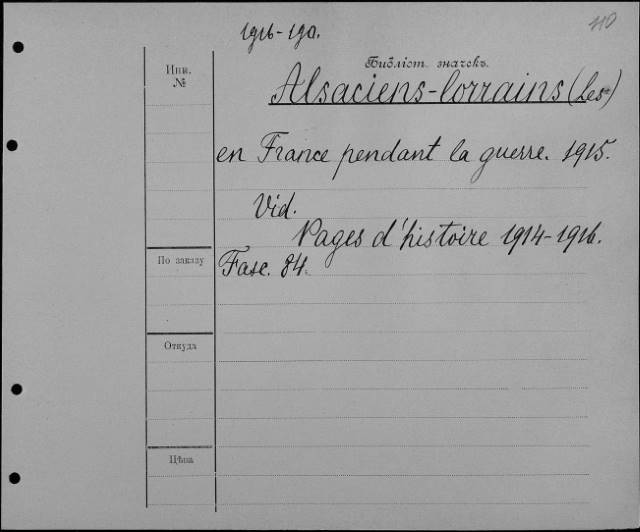 1916-190.
110
Библіот. значекъ.
Инв.
№
Alsaciens-lorrains (Les)
en France pendant la guerre. 1915.
Vid.
Pages d'histoire 1914-1916.
По заказу
Fasc. 84.
Откуда
Цѣна